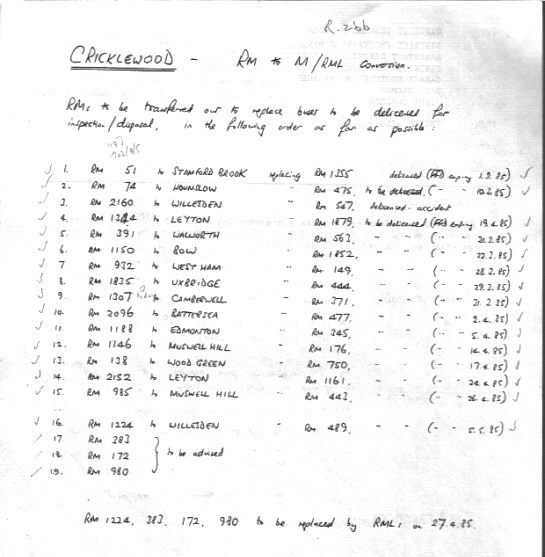 R.266
CRICKLEWOOD - RM to M/RML Conversion.
RMs to be transferred out to replace buses to be delicensed for
inspection/disposal, in the following order as far as possible:
1. RM 51 to STAMFORD BROOK replacing RM 1355 delicensed (FFD expiry 1.2.85)
2. RM 74 to HOUNSLOW " RM 475, to be delicensed (" " 10.3.85)
3. RM 2160 to WILLESDEN " RM 547 delicensed - accident
4. RM 1344 to LEYTON " RM 1879, to be delicensed (FFD expiry 19.4.85)
5. RM 391 to WALWORTH " RM 563, " " (" " 21.2.85)
6. RM 1150 to BOW " RM 1852, " " (" " 22.3.85)
7 RM 932 to WEST HAM " RM 149, " " (" " 28.3.85)
8. RM 1835 to UXBRIDGE " RM 444, " " (" " 29.3.85)
9. RM 1307 to CAMBERWELL " RM 371, " " (" " 31.3.85)
10. RM 2096 to BATTERSEA " RM 477, " " (" " 2.4.85)
11. RM 1188 to EDMONTON " RM 345, " " (" " 5.4.85)
12. RM 1146 to MUSWELL HILL " RM 176, " " (" " 14.4.85)
13. RM 138 to WOOD GREEN " RM 750, " " (" " 17.4.85)
14. RM 2152 to LEYTON " RM 1161, " " (" " 24.4.85)
15. RM 985 to MUSWELL HILL " RM 443, " " (" " 26.4.85)
16. RM 1224 to WILLESDEN " RM 489, " " (" " 5.5.85)
17 RM 383
18. RM 172 } to be advised
19. RM 980
RM 1224, 383, 172, 980 to be replaced by RMLs on 27.4.85.